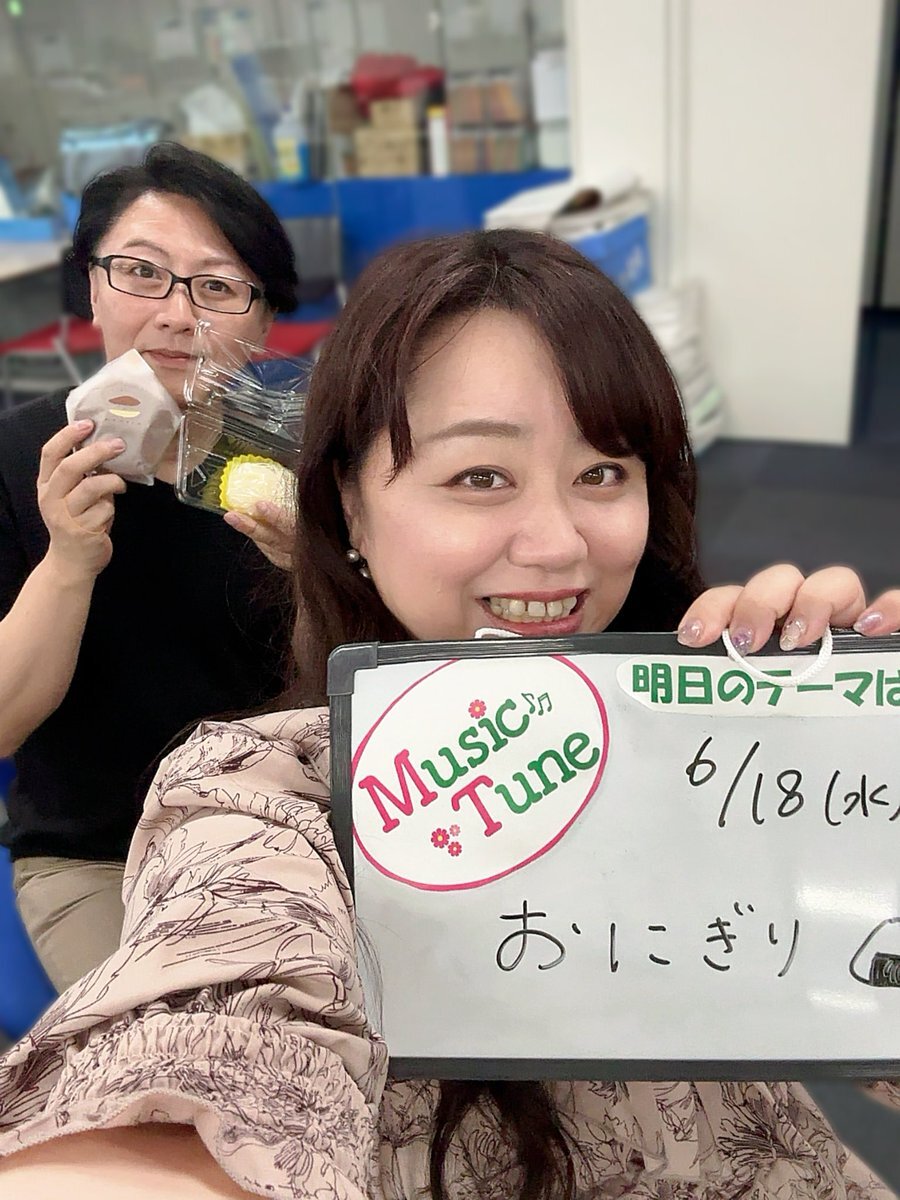 Music
Tune
明日のテーマは
6/18(水)
おにぎり